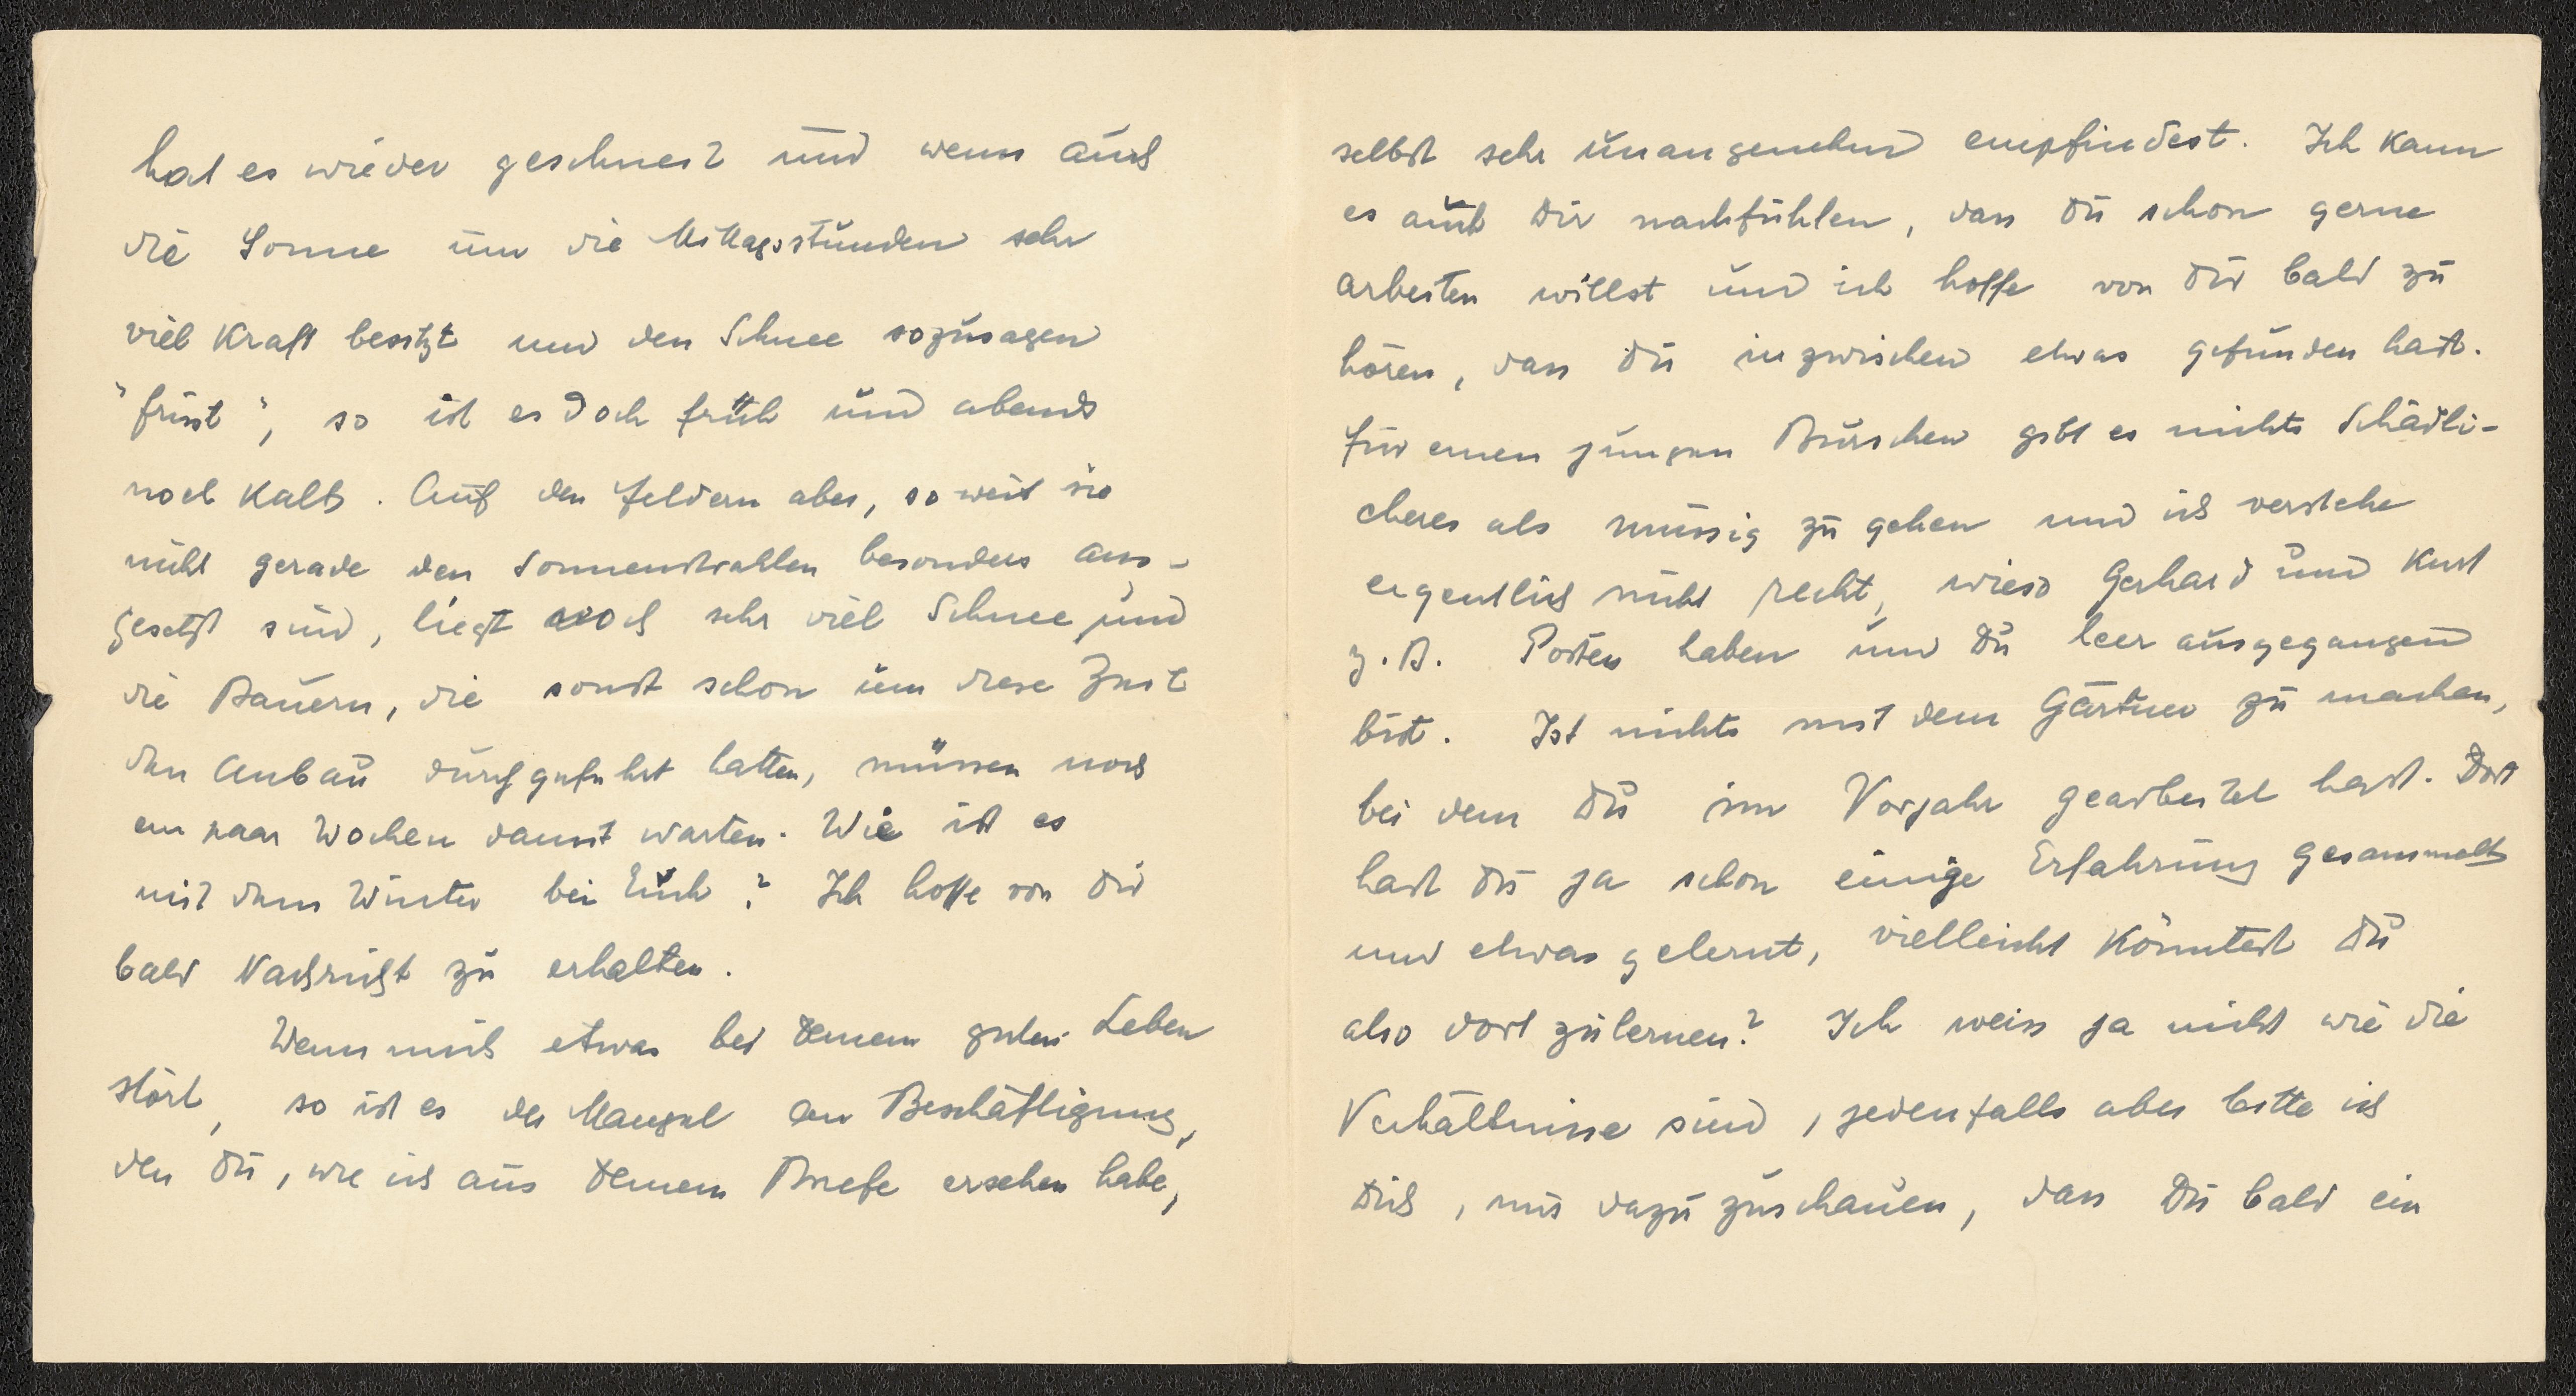 hat es wieder geschneit und wenn auch
die Sonne um die Mittagsstunden sehr
viel Kraft besitzt und den Schnee sozusagen
"frisst", so ist es doch früh und abends
noch kalt. Auf den Feldern aber, so weit sie
nicht gerade den Sonnenstrahlen besonders aus-
gesetzt sind, liegt noch sehr viel Schnee und
die Bauern, die sonst schon um diese Zeit
den Anbau durchgeführt hatten, müssen noch
ein paar Wochen damit warten. Wie ist es
mit dem Winter bei Euch? Ich hoffe von Dir
bald Nachricht zu erhalten.
Wenn mich etwas bei Deinem guten Leben
stört, so ist es der Mangel an Beschäftigung,
den Du, wie ich aus Deinem Briefe ersehen habe,
selbst sehr unangenehm empfindest. Ich kann
es auch Dir nachfühlen, dass Du schon gerne
arbeiten willst und ich hoffe von Dir bald zu
hören, dass Du inzwischen etwas gefunden hast.
Für einen jungen Burschen gibt es nichts Schädli-
cheres als müssig zu gehen und ich verstehe
eigentlich nicht recht, wieso Gerhard und Kurt
z. B. Posten haben und Du leer ausgegangen
bist. Ist nichts mit dem Gärtner zu machen,
bei dem Du im Vorjahr gearbeitet hast. Dort
hast Du ja schon einige Erfahrung gesammelt
und etwas gelernt, vielleicht könntest Du
also dort zulernen? Ich weiss ja nicht wie die
Verhältnisse sind, jedenfalls aber bitte ich
Dich, nur dazuzuschauen, dass Du bald ein